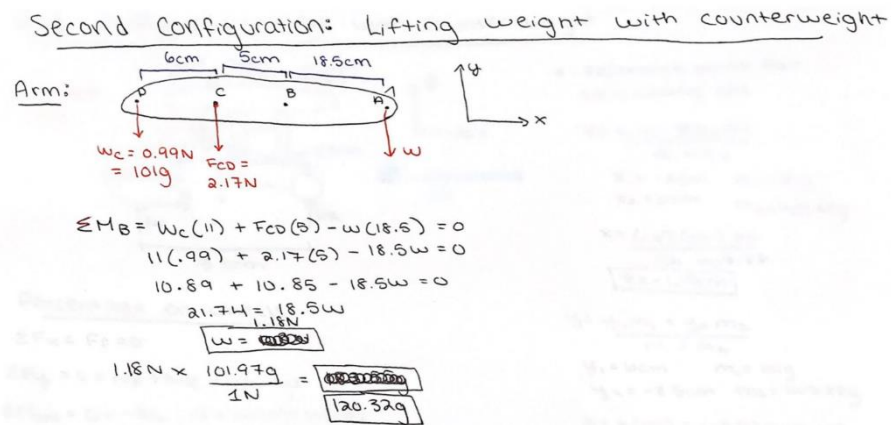 Second Configuration: Lifting weight with counterweight
6cm 5cm 18.5cm
Arm:
D C B A
y
x
Wc = 0.99N
= 101g
FCD =
2.17N
w
ΣMB = Wc(11) + FCD(5) - w(18.5) = 0
11(.99) + 2.17(5) - 18.5w = 0
10.89 + 10.85 - 18.5w = 0
21.74 = 18.5w
1.18N
w =
1.18N × 101.97g / 1N =
120.32g